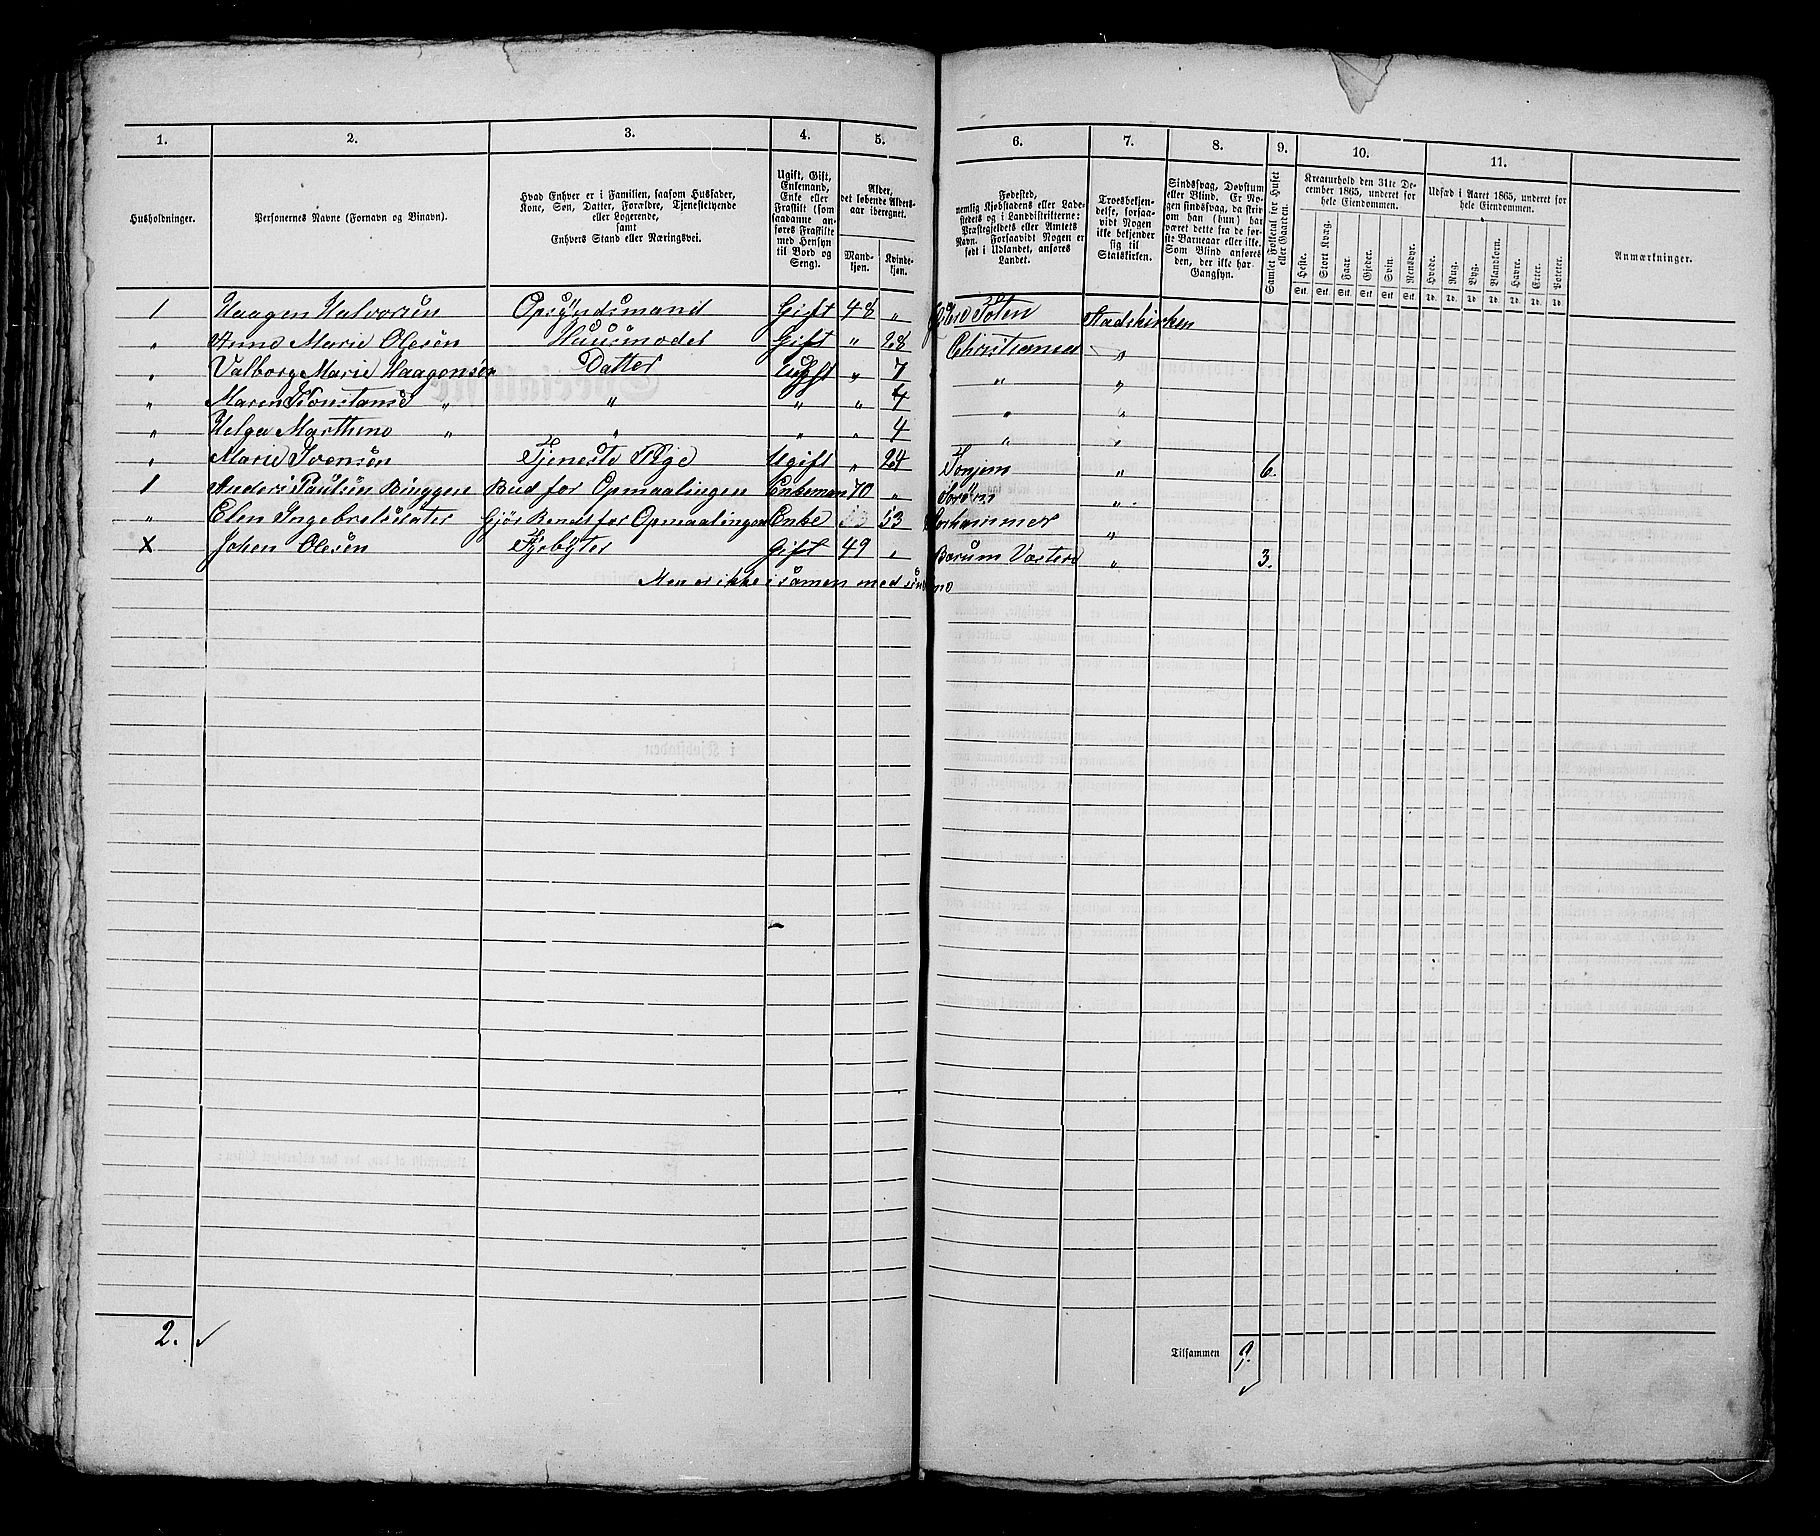 1. 2. 3. 4. 5. 6. 7. 8. 9. 10. 11.
Husholdninger.
Personernes Navne (Fornavn og Binavn).
Hvad Enhver er i Familien, saasom Husfader,
Kone, Søn, Datter, Forældre, Tjenestetyende
eller Logerende,
samt
Enhvers Stand eller Næringsvei.
Ugift, Gift,
Enkemand,
Enke eller
Fraskilt (som
saadanne an-
føres Fraskilte
med Hensyn
til Bord og
Seng).
Alder,
det løbende Alders-
aar iberegnet.
Mand-
kjøn.
Kvinde-
kjøn.
Fødested,
nemlig Kjøbstadens eller Lade-
stedets og i Landdistrikterne:
Præstegjeldets eller Amtets
Navn. Forsaavidt Nogen er
født i Udlandet, anføres
Landet.
Troesbekjen-
delse, forsaa-
vidt Nogen
ikke bekjender
sig til
Statskirken.
Sindssvag, Døvstum
eller Blind. Er No-
gen sindssvag, da skri-
ves om han (hun) har
været dette fra de før-
ste Barneaar eller ikke.
Som Blind anføres
den, der ikke har
Gangsyn.
Samlet Folketal for Huset
eller Gaarden.
Kreaturhold den 31te De-
cember 1865, underet for
hele Eiendommen.
Heste. Stort Kvæg. Faar. Gjeder. Svin. Rensdyr.
Stk. Stk. Stk. Stk. Stk. Stk.
Udsæd i Aaret 1865, underet for
hele Eiendommen.
Hvede. Rug. Byg. Blandkorn. Havre. Erter. Poteter.
Td. Td. Td. Td. Td. Td. Td.
Anmærkninger.
1 Haagen Halvorsén Opsÿndsmand Gift 48 „ Toten Stadskirken
„ Anne Marie Olesén Huusmoder Gift „ 28 Christiania „
„ Valborg Marie Haagensén Datter Ugift „ 7 „ „
„ Maren Konstanse „ „ „ „ 7 „ „
„ Helga Marthine „ „ „ „ 4 „ „
„ Marie Ivensén Tjeneste Pige Ugift „ 24 „ 6.
1 Anders Paulsén Binggen Bud for Opmaalingen Enkeman 70 „ „
„ Elen Ingebretsdater Gjör Rendt for Opmaalingen Enke 53 „
X Johen Olesén Gift 49 „ Bærum Væstere „ 3.
Men er ikke i samen med
2. ✓
Tilsammen 9. ✓